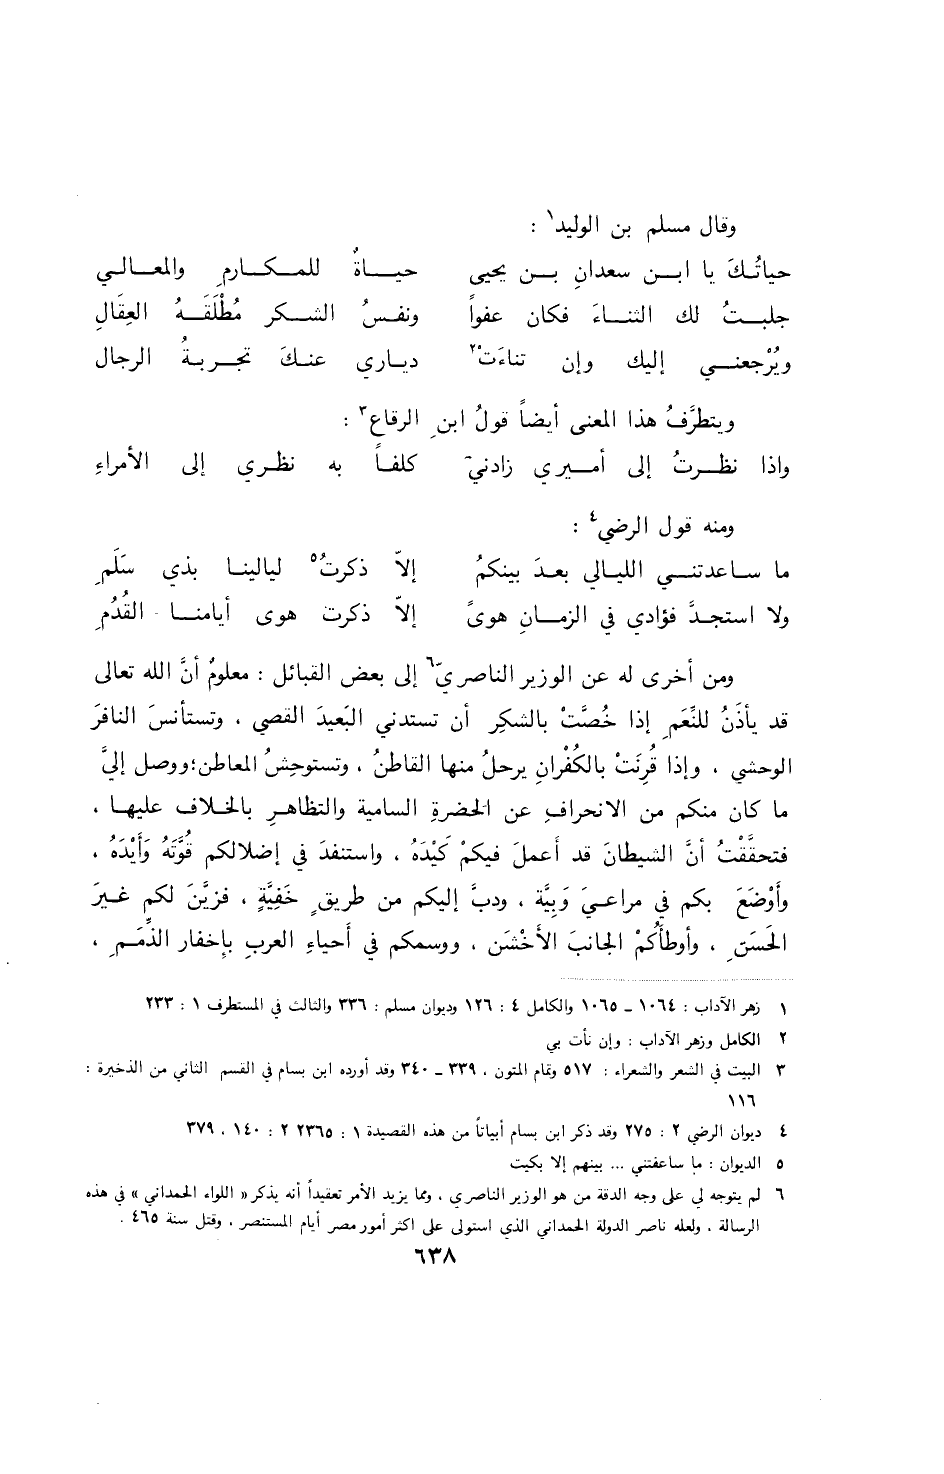 وقال مسلم بن الوليد١ :
حياتُكَ يا ابن سعدانِ بن يحيى حياةٌ للمكارمِ والمعالي
جلبتُ لك الثناءَ فكان عفواً ونفسُ الشكر مُطْلَقَةُ العِقَالِ
ويُرْجعني إليك وإن تناءَتْ٢ دياري عنكَ تجربةُ الرجال
ويتطرَّفُ هذا المعنى أيضاً قولُ ابنِ الرقاع٣ :
واذا نظرتُ إلى أميري زادنيَ كلفاً به نظري إلى الأمراءِ
ومنه قول الرضي٤ :
ما ساعدتني الليالي بعدَ بينكمُ إلاّ ذكرتُ٥ ليالينا بذي سَلَمِ
ولا استجدَّ فؤادي في الزمانِ هوىً إلاّ ذكرت هوى أيامنا القُدُمِ
ومن أخرى له عن الوزير الناصريّ٦ إلى بعض القبائل : معلومٌ أنَّ الله تعالى
قد يأذَنُ للنِّعَمِ إذا خُصَّتْ بالشكرِ أن تستدني البَعيدَ القصي ، وتستأنسَ النافرَ
الوحشي ، وإذا قُرِنَتْ بالكُفْرانِ يرحلُ منها القاطنُ ، وتستوحِشُ المعاطن؛ ووصل إليَّ
ما كان منكم من الانحرافِ عن الحضرةِ السامية والتظاهرِ بالخلاف عليها ،
فتحقَّقْتُ أنَّ الشيطانَ قد أَعملَ فيكمْ كَيْدَهُ ، واستنفدَ في إضلالكم قُوَّتَهُ وَأَيْدَهُ ،
وأَوْضَعَ بكم في مراعيَ وَبِيَّة ، ودبَّ إليكم من طريقٍ خَفِيَّةٍ ، فزيَّنَ لكم غيرَ
الحَسَنِ ، وأوطأَكُمْ الجانبَ الأَخْشَن ، ووسمكم في أَحياءِ العربِ بإخفار الذِّمَمِ ،
١ زهر الآداب : ١٠٦٤ ـ ١٠٦٥ والكامل ٤ : ١٢٦ وديوان مسلم : ٣٣٦ والثالث في المستطرف ١ : ٢٣٣
٢ الكامل وزهر الآداب : وإن نأت بي
٣ البيت في الشعر والشعراء : ٥١٧ وتمام المتون ، ٣٣٩ ـ ٣٤٠ وقد أورده ابن بسام في القسم الثاني من الذخيرة :
١١٦
٤ ديوان الرضي ٢ : ٢٧٥ وقد ذكر ابن بسام أبياتاً من هذه القصيدة ١ : ٣٦٥ ٢ : ١٤٠ ، ٣٧٩
٥ الديوان : ما ساعفتني ... بينهم إلا بكيت
٦ لم يتوجه لي على وجه الدقة من هو الوزير الناصري ، ومما يزيد الأمر تعقيداً أنه يذكر « اللواء الحمداني » في هذه
الرسالة ، ولعله ناصر الدولة الحمداني الذي استولى على اكثر أمور مصر أيام المستنصر ، وقتل سنة ٤٦٥ .
٦٣٨